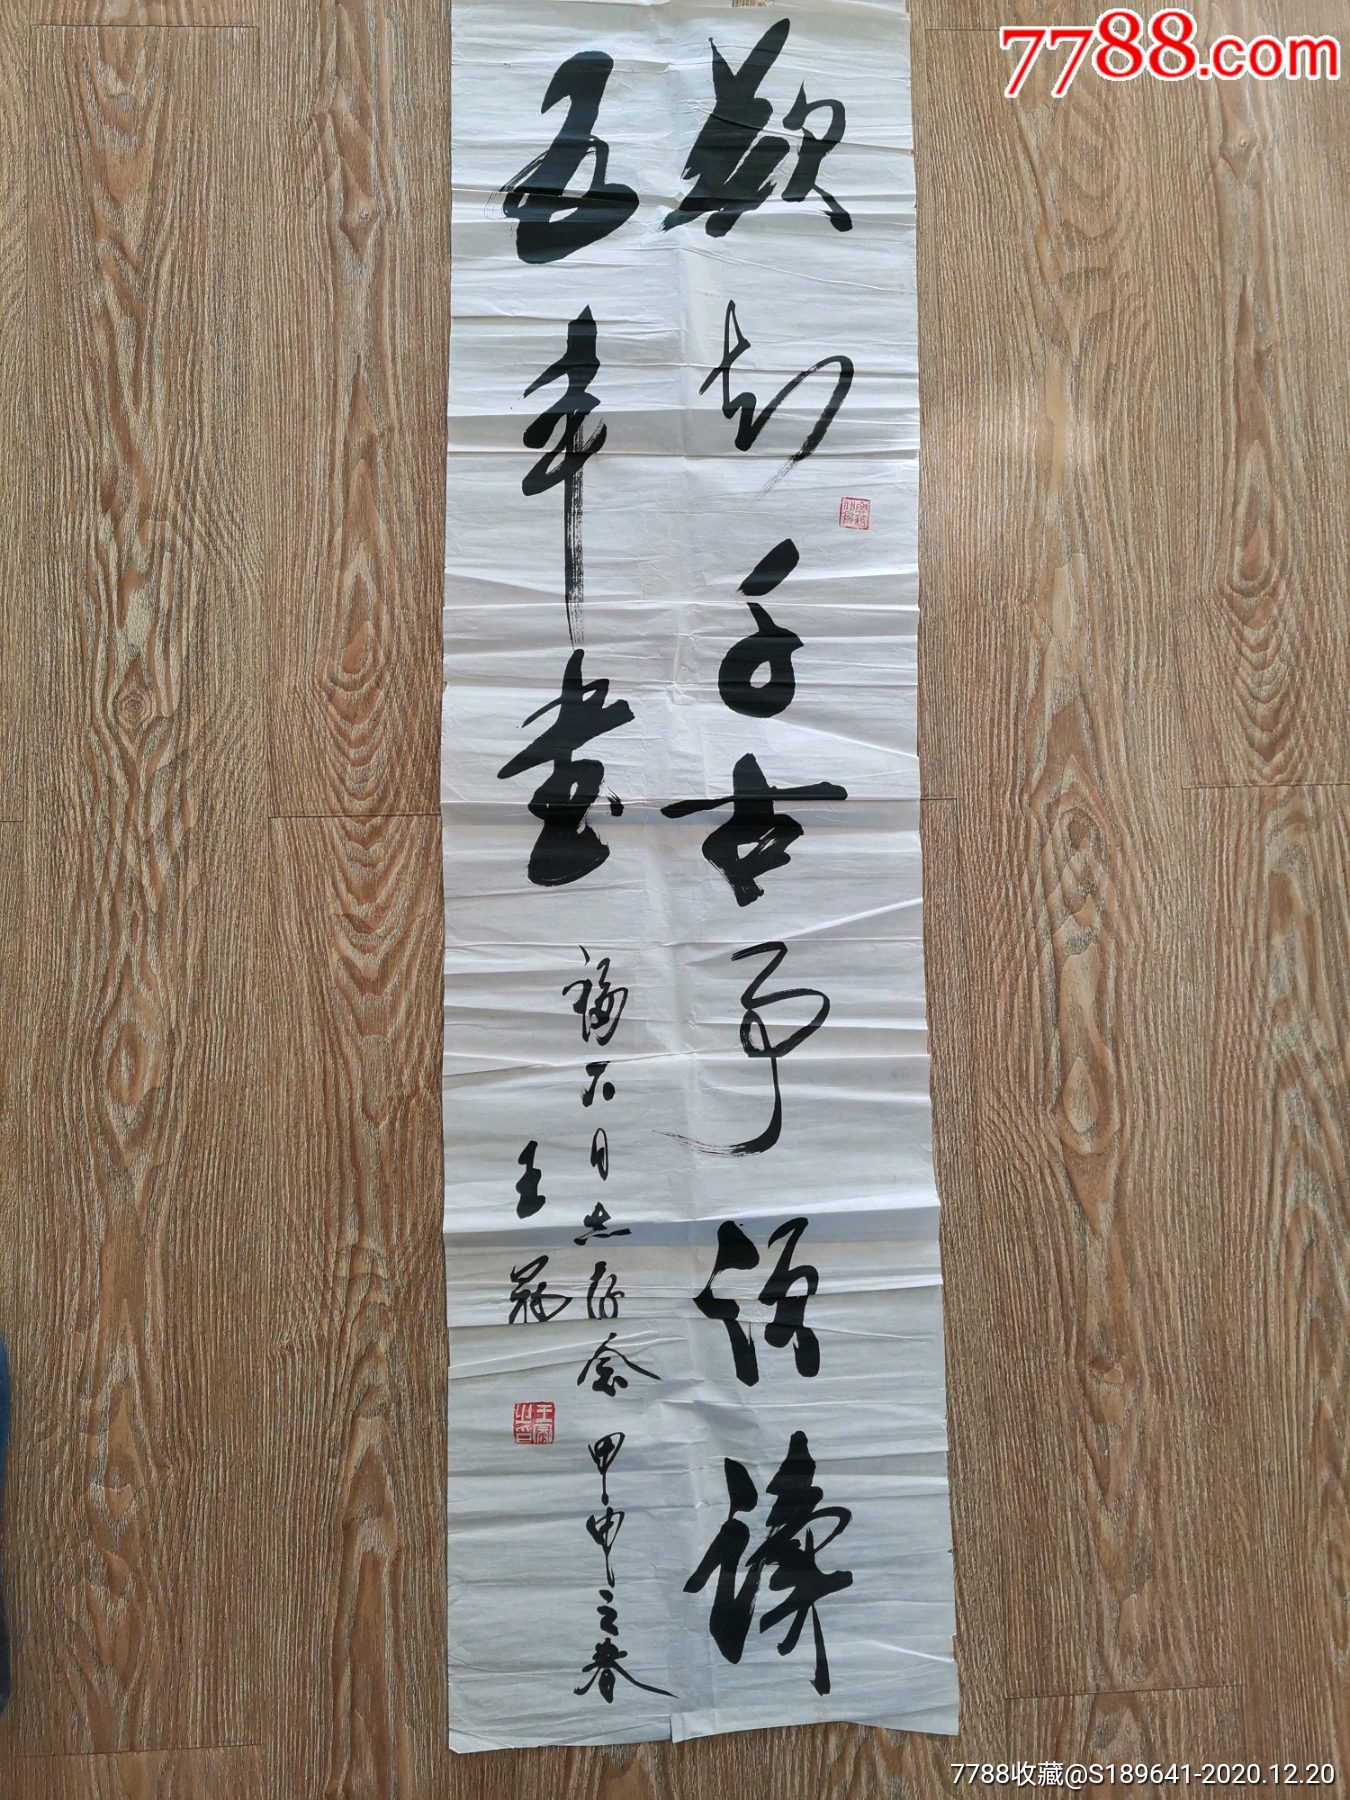 欲知千古事须读
五车书
石同志存念 甲申之春
王冠
7788.com
7788收藏@S189641-2020.12.20